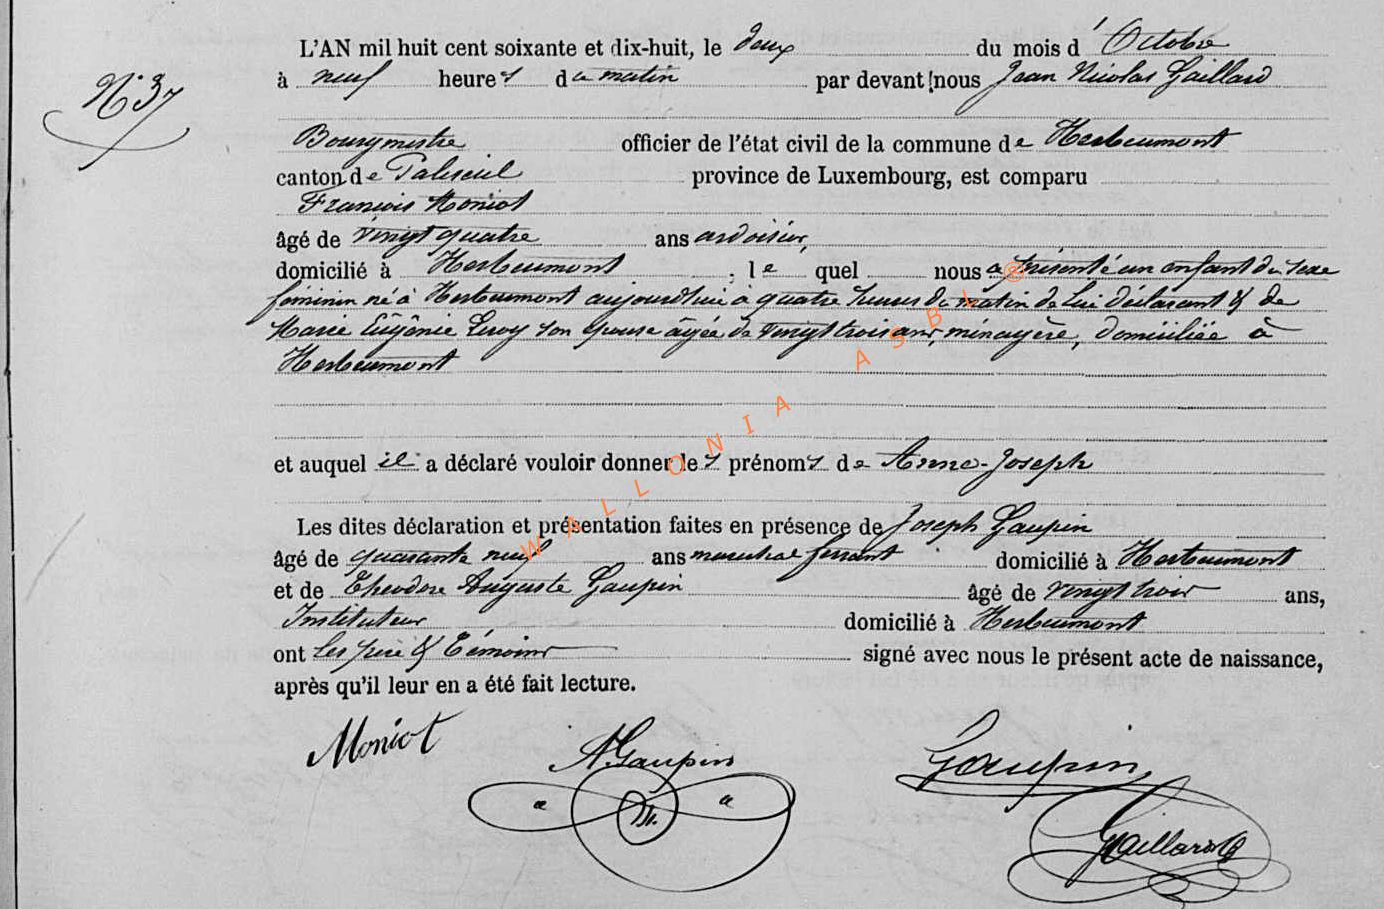 L'AN mil huit cent soixante et dix-huit, le deux du mois d' Octobre
N° 37
à neuf heures du matin par devant nous Jean Nicolas Gaillard
Bourgmestre officier de l'état civil de la commune de Herbeumont
canton de Paliseul province de Luxembourg, est comparu
François Moniot
âgé de vingt quatre ans ardoisier,
domicilié à Herbeumont ; le quel nous a présenté un enfant du sexe
féminin né à Herbeumont aujourd'hui à quatre heures du matin de lui déclarant & de
Marie Eugénie Leroy son épouse âgée de vingt trois ans, ménagère, domiciliée à
Herbeumont
et auquel il a déclaré vouloir donner les prénoms de Anne-Joseph
Les dites déclaration et présentation faites en présence de Joseph Gaupin
âgé de quarante neuf ans maréchal ferrant domicilié à Herbeumont
et de Théodore Auguste Gaupin âgé de vingt trois ans,
Instituteur domicilié à Herbeumont
ont les père & témoins signé avec nous le présent acte de naissance,
après qu'il leur en a été fait lecture.
Moniot A. Gaupin Gaupin
Gaillard
@ WALLONIA ASBL